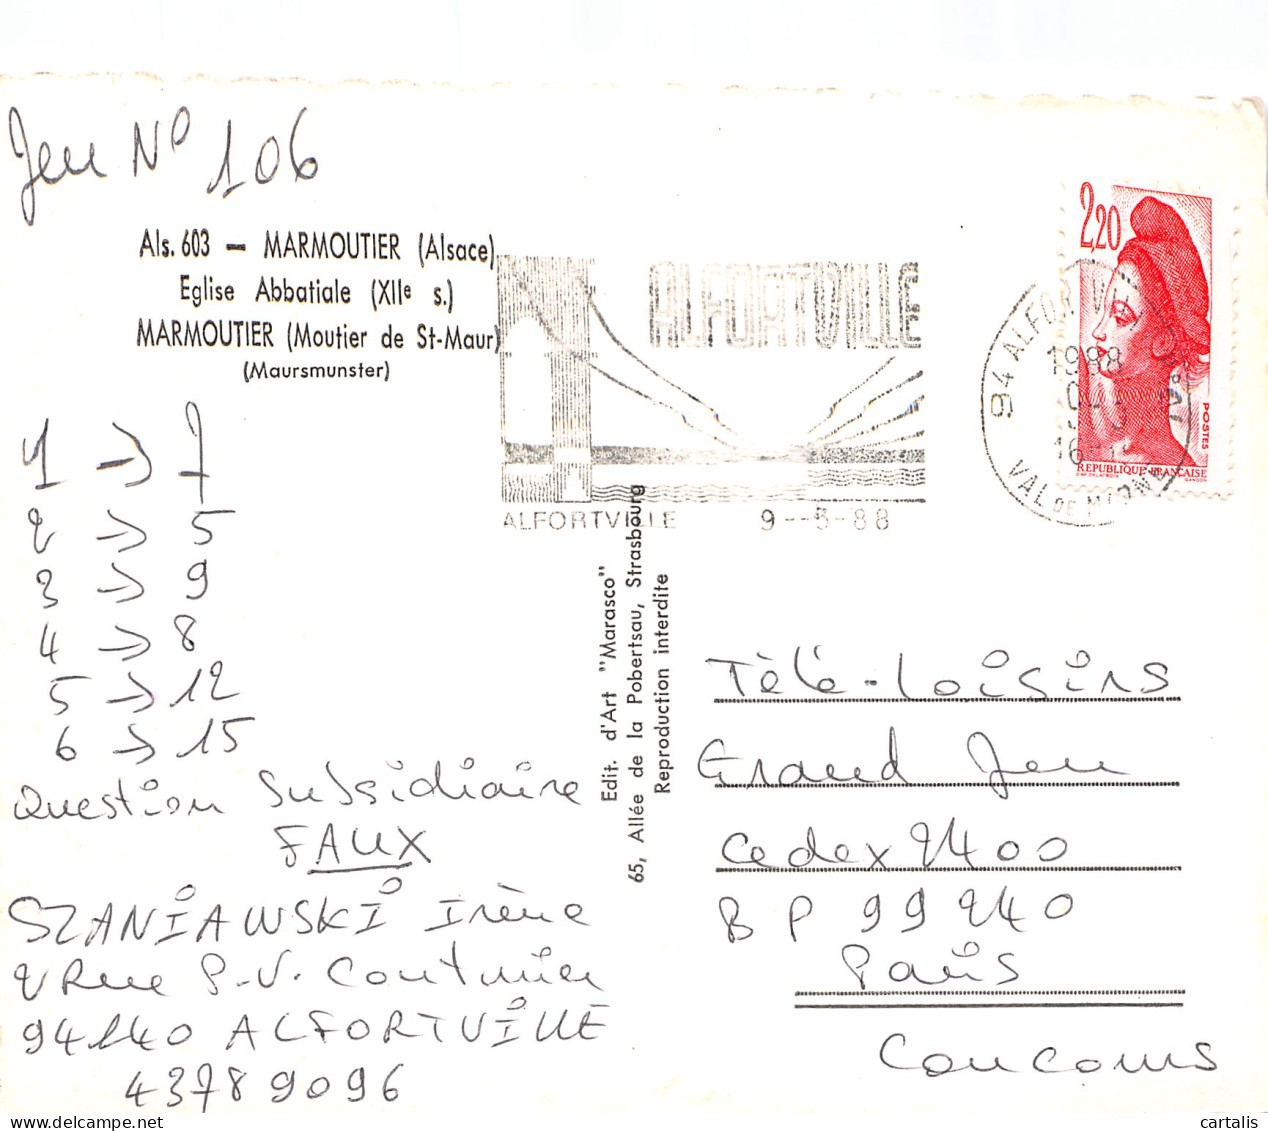 Jeu N° 106
Als. 603 — MARMOUTIER (Alsace)
Eglise Abbatiale (XIIe s.)
MARMOUTIER (Moutier de St-Maur)
(Maursmunster)
1 → 7
2 → 5
3 → 9
4 → 8
5 → 12
6 → 15
Question Subsidiaire
FAUX
SZANIAWSKI Irène
2 Rue P.V. Couturier
94140 ALFORTVILLE
43789096
ALFORTVILLE
ALFORTVILLE 9--5-88
94 ALFORTVILLE
1988
VAL DE MARNE
2,20
POSTES
REPUBLIQUE FRANÇAISE
Edit. d'Art "Marasco"
65, Allée de la Pobertsau, Strasbourg
Reproduction interdite
Télé-Loisirs
Grand Jeu
Cedex 2400
BP 99 240
Paris
Concours
cartalis